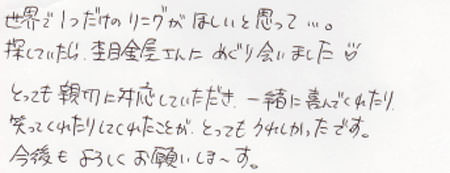 世界で1つだけのリングがほしいと思って…。
探していたら、杢目金屋さんにめぐり会いました
とっても親切に対応していただき、一緒に喜んでくれたり、
笑ってくれたりしてくれたことが、とってもうれしかったです。
今後もよろしくお願いしま〜す。